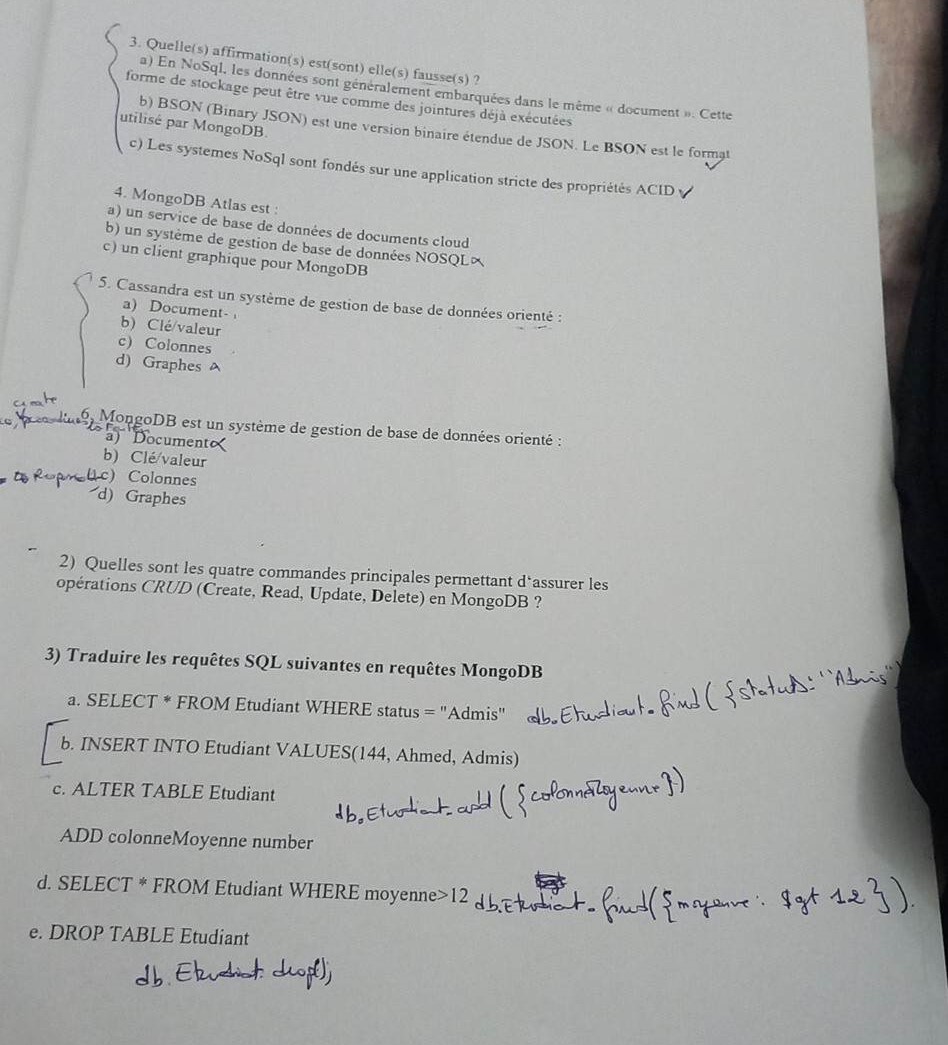 3. Quelle(s) affirmation(s) est(sont) elle(s) fausse(s) ?
a) En NoSql, les données sont généralement embarquées dans le même « document ». Cette
forme de stockage peut être vue comme des jointures déjà exécutées
b) BSON (Binary JSON) est une version binaire étendue de JSON. Le BSON est le format
utilisé par MongoDB.
c) Les systemes NoSql sont fondés sur une application stricte des propriétés ACID
4. MongoDB Atlas est :
a) un service de base de données de documents cloud
b) un système de gestion de base de données NOSQL
c) un client graphique pour MongoDB
5. Cassandra est un système de gestion de base de données orienté :
a) Document-
b) Clé/valeur
c) Colonnes
d) Graphes
create
6. MongoDB est un système de gestion de base de données orienté :
a) Document
b) Clé/valeur
c) Colonnes
d) Graphes
2) Quelles sont les quatre commandes principales permettant d'assurer les
opérations CRUD (Create, Read, Update, Delete) en MongoDB ?
3) Traduire les requêtes SQL suivantes en requêtes MongoDB
a. SELECT * FROM Etudiant WHERE status = "Admis" db.Etudiant.find({status:"Admis"}
b. INSERT INTO Etudiant VALUES(144, Ahmed, Admis)
c. ALTER TABLE Etudiant
db.Etudiant.add({colonneMoyenne})
ADD colonneMoyenne number
d. SELECT * FROM Etudiant WHERE moyenne>12 db.Etudiant.find({moyenne: $gt 12}).
e. DROP TABLE Etudiant
db.Etudiant.drop();